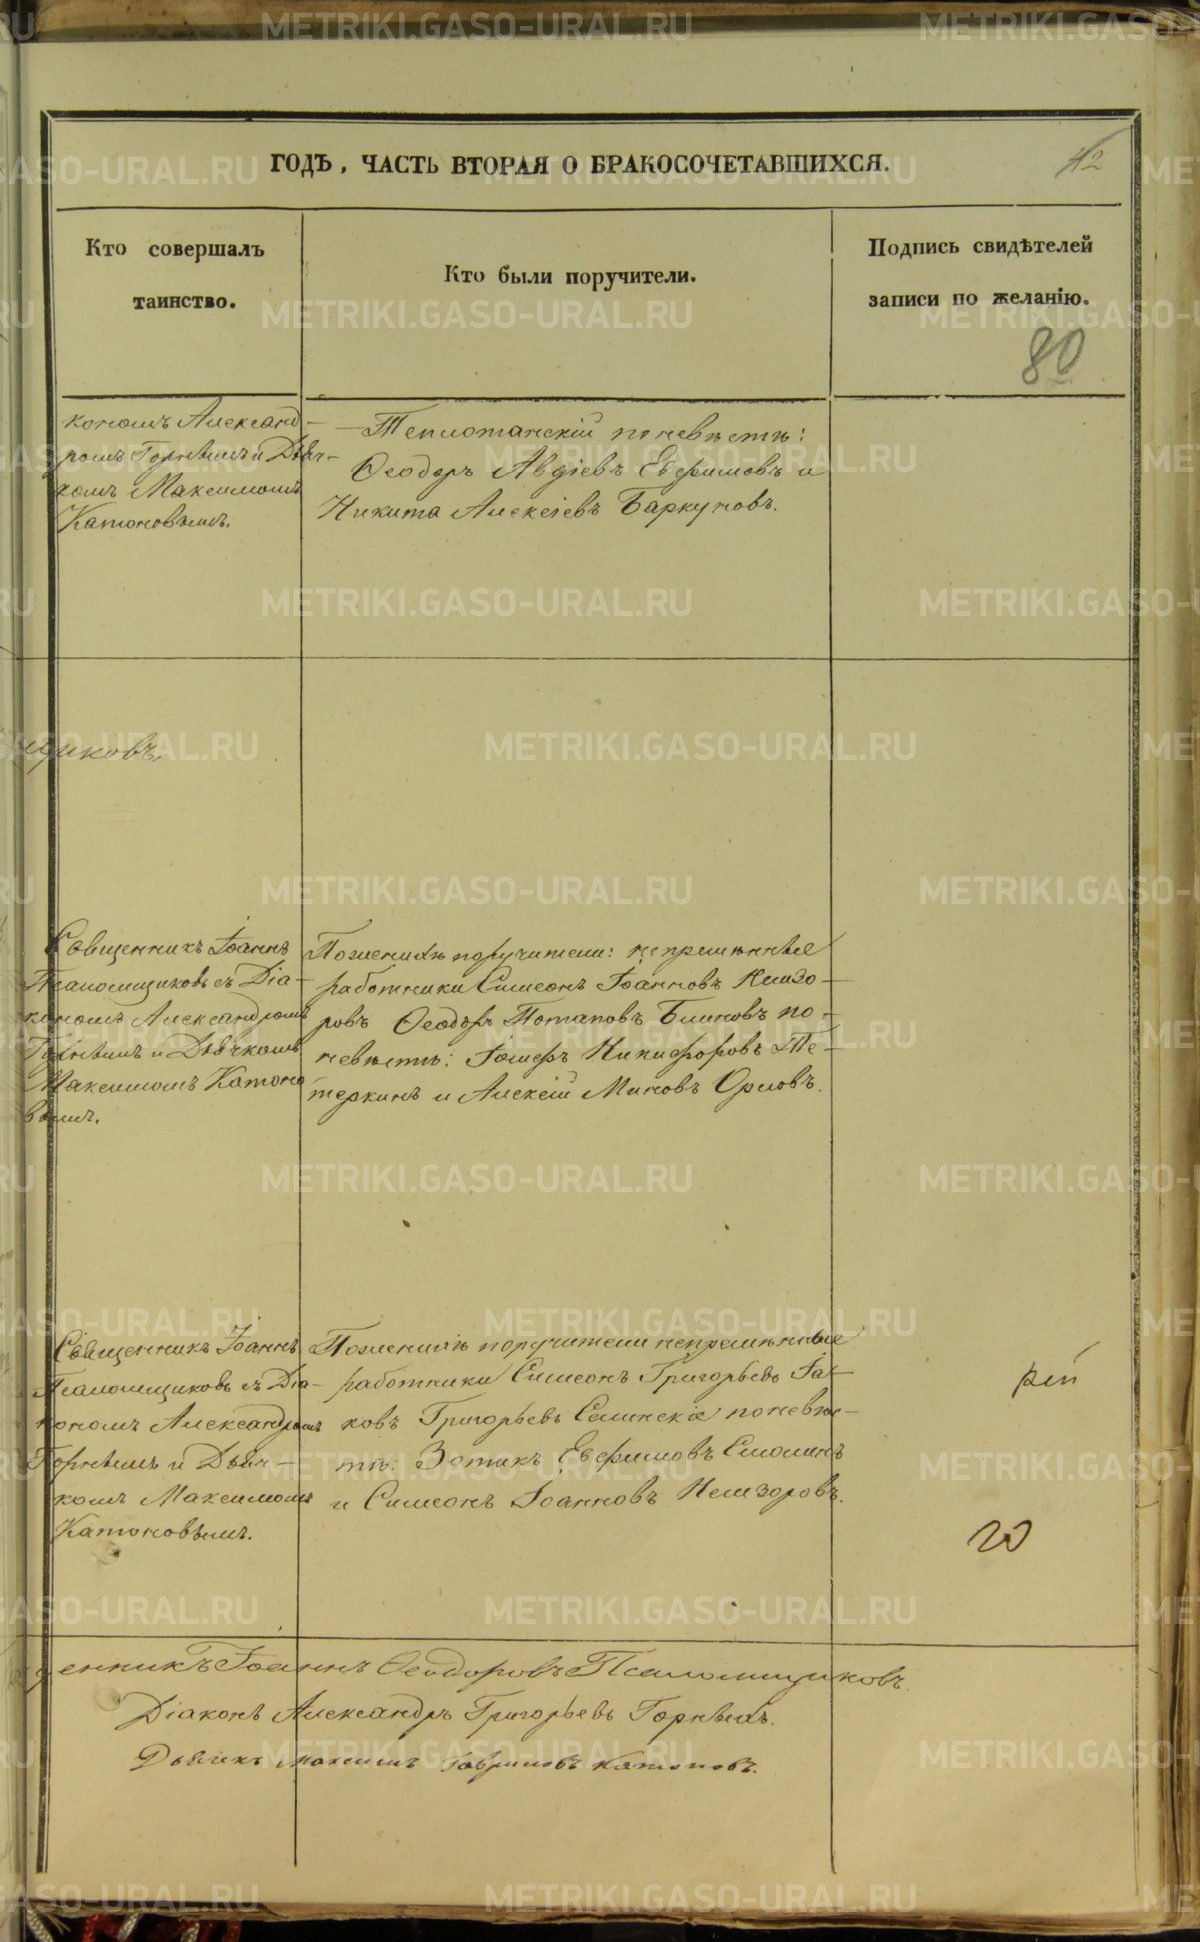 ГОДЪ, ЧАСТЬ ВТОРАЯ О БРАКОСОЧЕТАВШИХСЯ.
42
Кто совершалъ
таинство.
Кто были поручители.
Подпись свидѣтелей
записи по желанію.
80
кономъ Александ-
ромъ Горнымъ и Дьяч-
комъ Максимомъ
Катоновымъ.
по невѣстѣ:
Ѳеодоръ Авдіевъ Евфимовъ и
Никита Алексіевъ Баркуновъ.
щиковъ
Священникъ Іоаннъ
Псаломщиковъ съ Діа-
кономъ Александромъ
Горнымъ и Дьячкомъ
Максимомъ Катоно
вымъ.
По женихѣ поручители: непремѣнные
работники Симеонъ Іоанновъ Немзо-
ровъ Ѳеодоръ Потаповъ Блиновъ по
невѣстѣ: Никифоровъ Те-
теркинъ и Алексій Миновъ Орловъ.
Священникъ Іоаннъ
Псаломщиковъ съ Діа-
кономъ Александромъ
Горнымъ и Дьяч-
комъ Максимомъ
Катоновымъ.
По женихѣ поручители непремѣнные
работники Симеонъ Григорьевъ Іа-
ковъ Григорьевъ по невѣс-
тѣ: Зотикъ Евфимовъ Смолинъ
и Симеонъ Іоанновъ Немзоровъ.
20
щенникъ Іоаннъ Ѳеодоровъ Псаломщиковъ.
Діаконъ Александръ Григорьевъ Горныхъ.
Дьячекъ Максимъ Гавриловъ Катоновъ.
METRIKI.GASO-URAL.RU